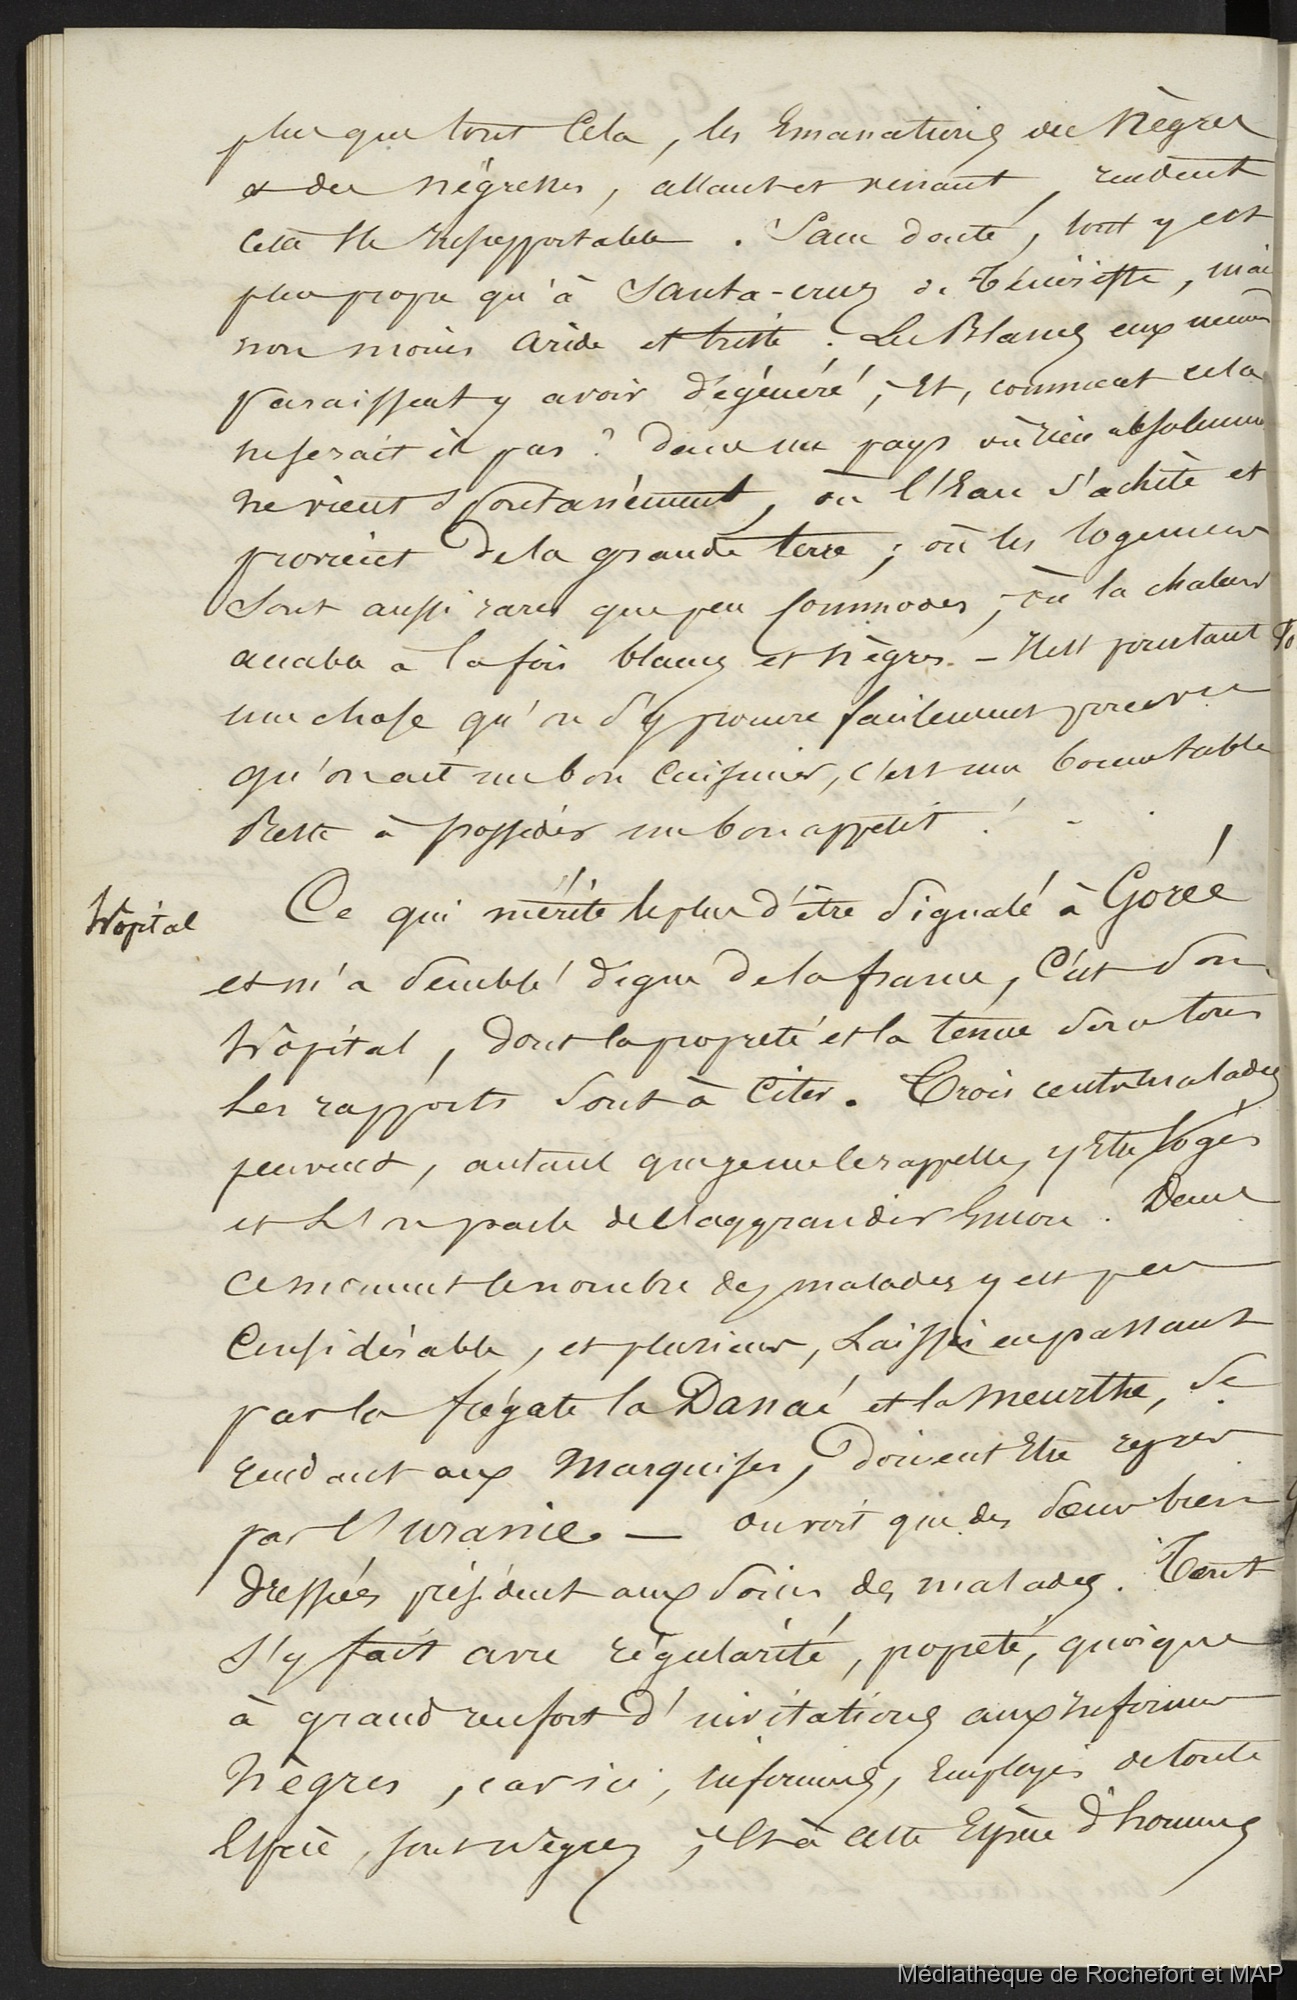 plus que tout cela, les Emanations des Nègres
& des négresses, allant et venant, rendent
cette Ile insupportable. Sans doute, tout y est
plus propre qu'à Santa-cruz de Ténériffe, mais
non moins aride et triste. Les Blancs eux mêmes
paraissent y avoir dégénéré, Et, comment cela
ne serait il pas ? dans un pays où rien absolument
ne vient Spontanément, où l'Eau s'achète et
provient de la grande terre ; où les logemens
Sont aussi rares que peu Commodes, où la chaleur
accable à la fois blancs et Nègres. — Il est pourtant
une chose qu'on s'y procure facilement pourvu
qu'on ait un bon cuisinier, c'est une bonne table
Reste à posséder un bon appétit !
Hôpital
Ce qui mérite le plus d'être Signalé à Gorée
et m'a Semblé digne de la france, C'est Son
hôpital, dont la propreté et la tenue Sous tous
les rapports Sont à Citer. Trois cents malades
peuvent, autant que je me le rappelle, y Etre logés
et l'on parle de l'aggrandir Encore. Dans
ce moment le nombre des malades y est peu
Considérable, et plusieurs, Laissés en passant
par la frégate la Danaé et la Meurthe, Se
rendant aux Marquises, doivent Etre repris
par l'Uranie. — On voit que des Sœurs bien
dressées président aux Soins des malades. Tout
s'y fait avec régularité, popeté, quoique
à grand renfort d'invitations aux infirmiers
Nègres, car ici, infirmiers, Employés de toute
Espèce, sont nègres ; Et à cette Espèce d'hommes
Médiathèque de Rochefort et MAP